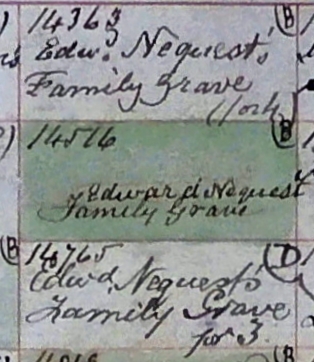 14363 (B)
Edw. Nequest's
Family Grave
14516 (B)
Edward Nequest
Family Grave
(B 14765 (D)
Edwd. Nequest's
Family Grave
for 3.
(B